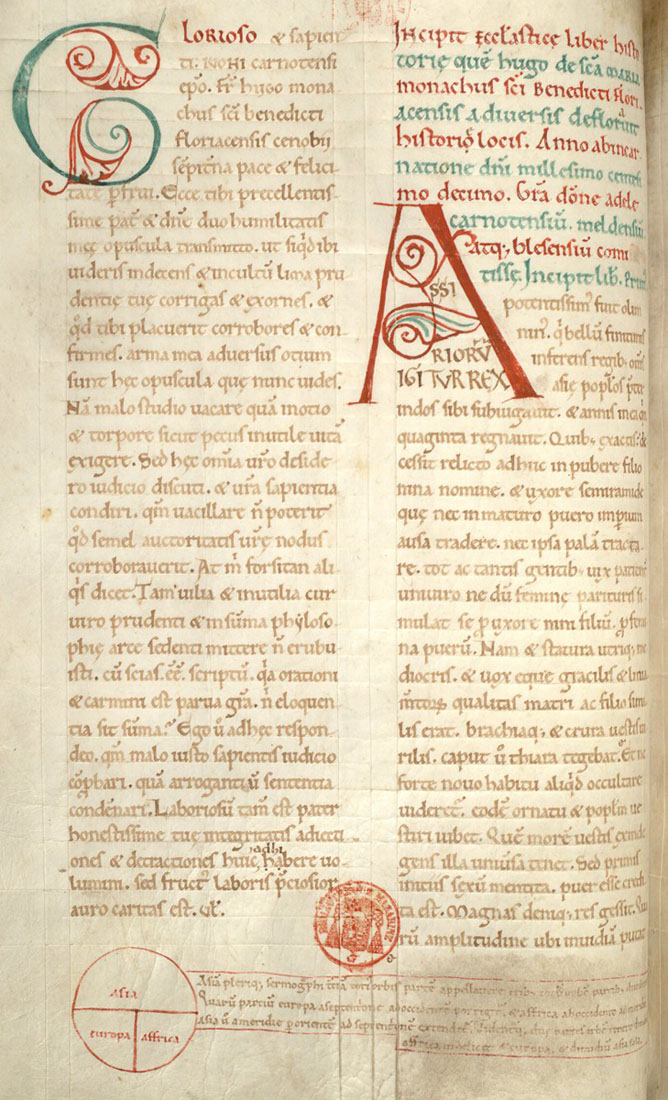 GLORIOSO & sapien
ti. IVONI carnotensi
ep̄o. Fr̄ hugo mona
chus sc̄i benedicti
floriacensis cenobii
sēpit̄na pace & felici
tate p̄frui. Ecce tibi precellentis
sime pat̄ & dn̄e duo humilitatis
meę opuscula transmitto. ut siq̇d ibi
videris indecens & incultū lima pru
dentię tuę corrigas & exornes. &
qd̄ tibi placuerit corrobores & con
firmes. arma mea adversus otium
sunt hęc opuscula quę nunc vides.
Nā malo studio vacare quā in otio
& torpore sicut pecus inutile vitā
exigere. Sed hęc om̄ia vr̄o deside
ro iudicio discuti. & vr̄a sapientia
condiri. qm̄ vacillare n̄ poterit
qd̄ semel auctoritatis vr̄ę nodus
corroboraverit. At m̄ forsitan ali
q̇s dicet. Tam vilia & inutilia cur
viro prudenti & in sūma phyloso
phię arce sedenti mittere n̄ erubu
isti. cū scias. eē. scriptū. q̇a orationi
& carmini est parva gr̄a. n̄ eloquen
tia sit sūma? Ego v̄ ad hęc respon
deo. qm̄ malo iusto sapientis iudicio
cōp̄bari. quā arroganti v̄ sententia
condēnari. Laboriosū tam̄ est pater
honestissime tuę integritatis adiecti
ones & detractiones huic adhi
habere vo
lumini. sed fruct᷒ laboris p̄ciosior
auro caritas est. Vł.
Incipit Ęccl̄asticę liber histo
torię quē hugo de sc̄a MARIA
monachus sc̄i Benedicti flori
acensis a diversis defloravit
historiaꝝ locis. Anno ab incar
natione dn̄i millesimo cente
mo decimo. Gr̄a dōne adele
carnotensiū. meldensiū
atq; blesensiū comi
tissę. Incipit lib̄.
ASSI
RIORV̄
IGITVR REX
potentissim᷒ fuit olim
nin᷒. q̇ bellū finitimis
inferens regib; 
asię popl̄os
indos sibi subiugavit. & annis
quaginta regnavit. Quib; exactis. de
cessit relicto adhuc inpubere filio
nina nomine. & uxore semiramide
quę nec inmaturo puero imperium
ausa tradere. nec ipsa palā tracta
re. tot ac tantis gentib; vix patient᷒
uni viro ne dū feminę parituris si
mulat se p̄ uxore nini filiū. p̄ femi
na puerū. Nam & statura utriq; me
diocris. & vox ęque gracilis &
qualitas matri ac filio simi
lis erat. brachia & crura vestis
rilis. caput v̄ thiara tegebat. Et ne
forte novo habitu aliq̇d occultare
videret᷒. eodē ornatu & popl̄m ve
stiri iubet. Quē morē vestis exinde
gens illa universa tenet. Sed primis
initiis sexum mentita. puer esse credi
ta est. Magnas deniq; res gessit. Qua
rū amplitudine ubi invidiā putat
asia
europa
affrica
Asiā pleriq; t̄ciā orbis partē appellavere
Quarū partiū europa a septentrione ad occidentē porrigit᷒. & affrica ab occidente
asia v̄ a meridie p̄ orientē ad septentrionē extendit᷒.
affrica & europa. & dimidiū asia sola